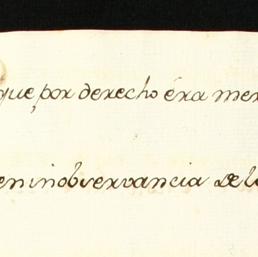 que, por derecho éra mer
en inobservancia de l